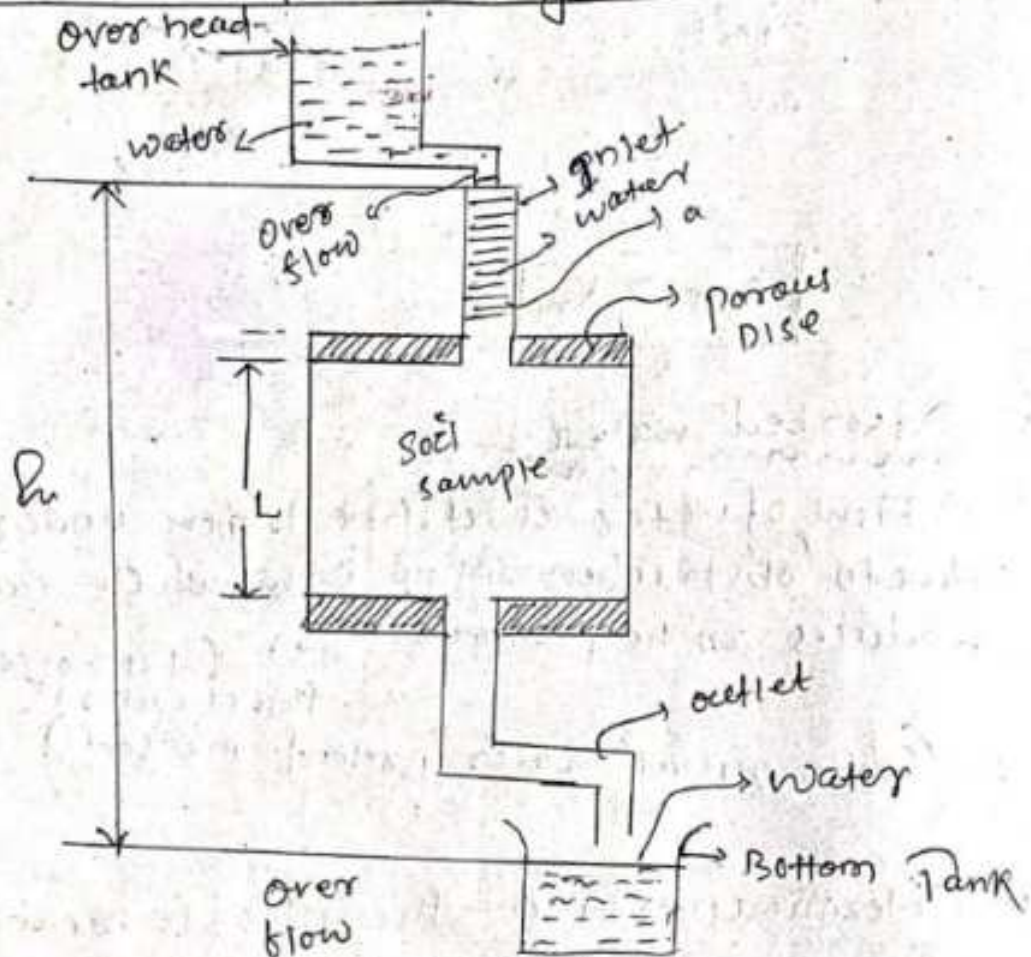 Over head-
tank
water
Over
flow
Inlet
water
a
porous
Disc
h
L
Soil
sample
outlet
Water
Bottom Tank
Over
flow